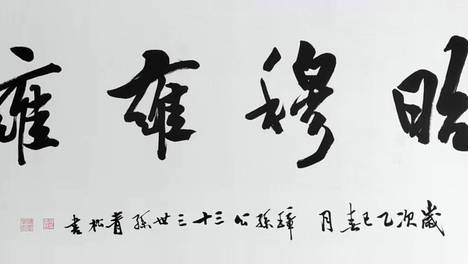 昭穆雍雍
歲次乙巳春月 璋孫公三十三世孫青松書